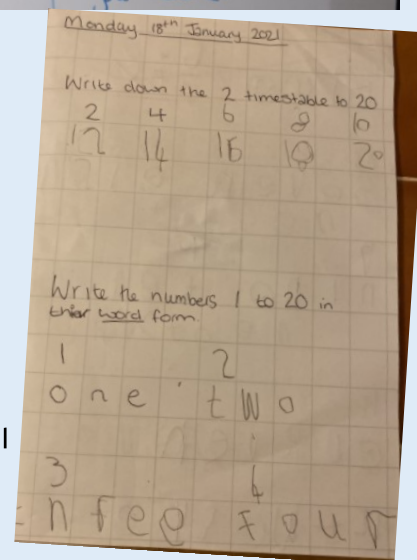 Monday 18th January 2021
Write down the 2 timestable to 20
2 4 6 8 10
12 14 16 18 20
Write the numbers 1 to 20 in
thier word form.
1 2
one two
3 4
nfee four